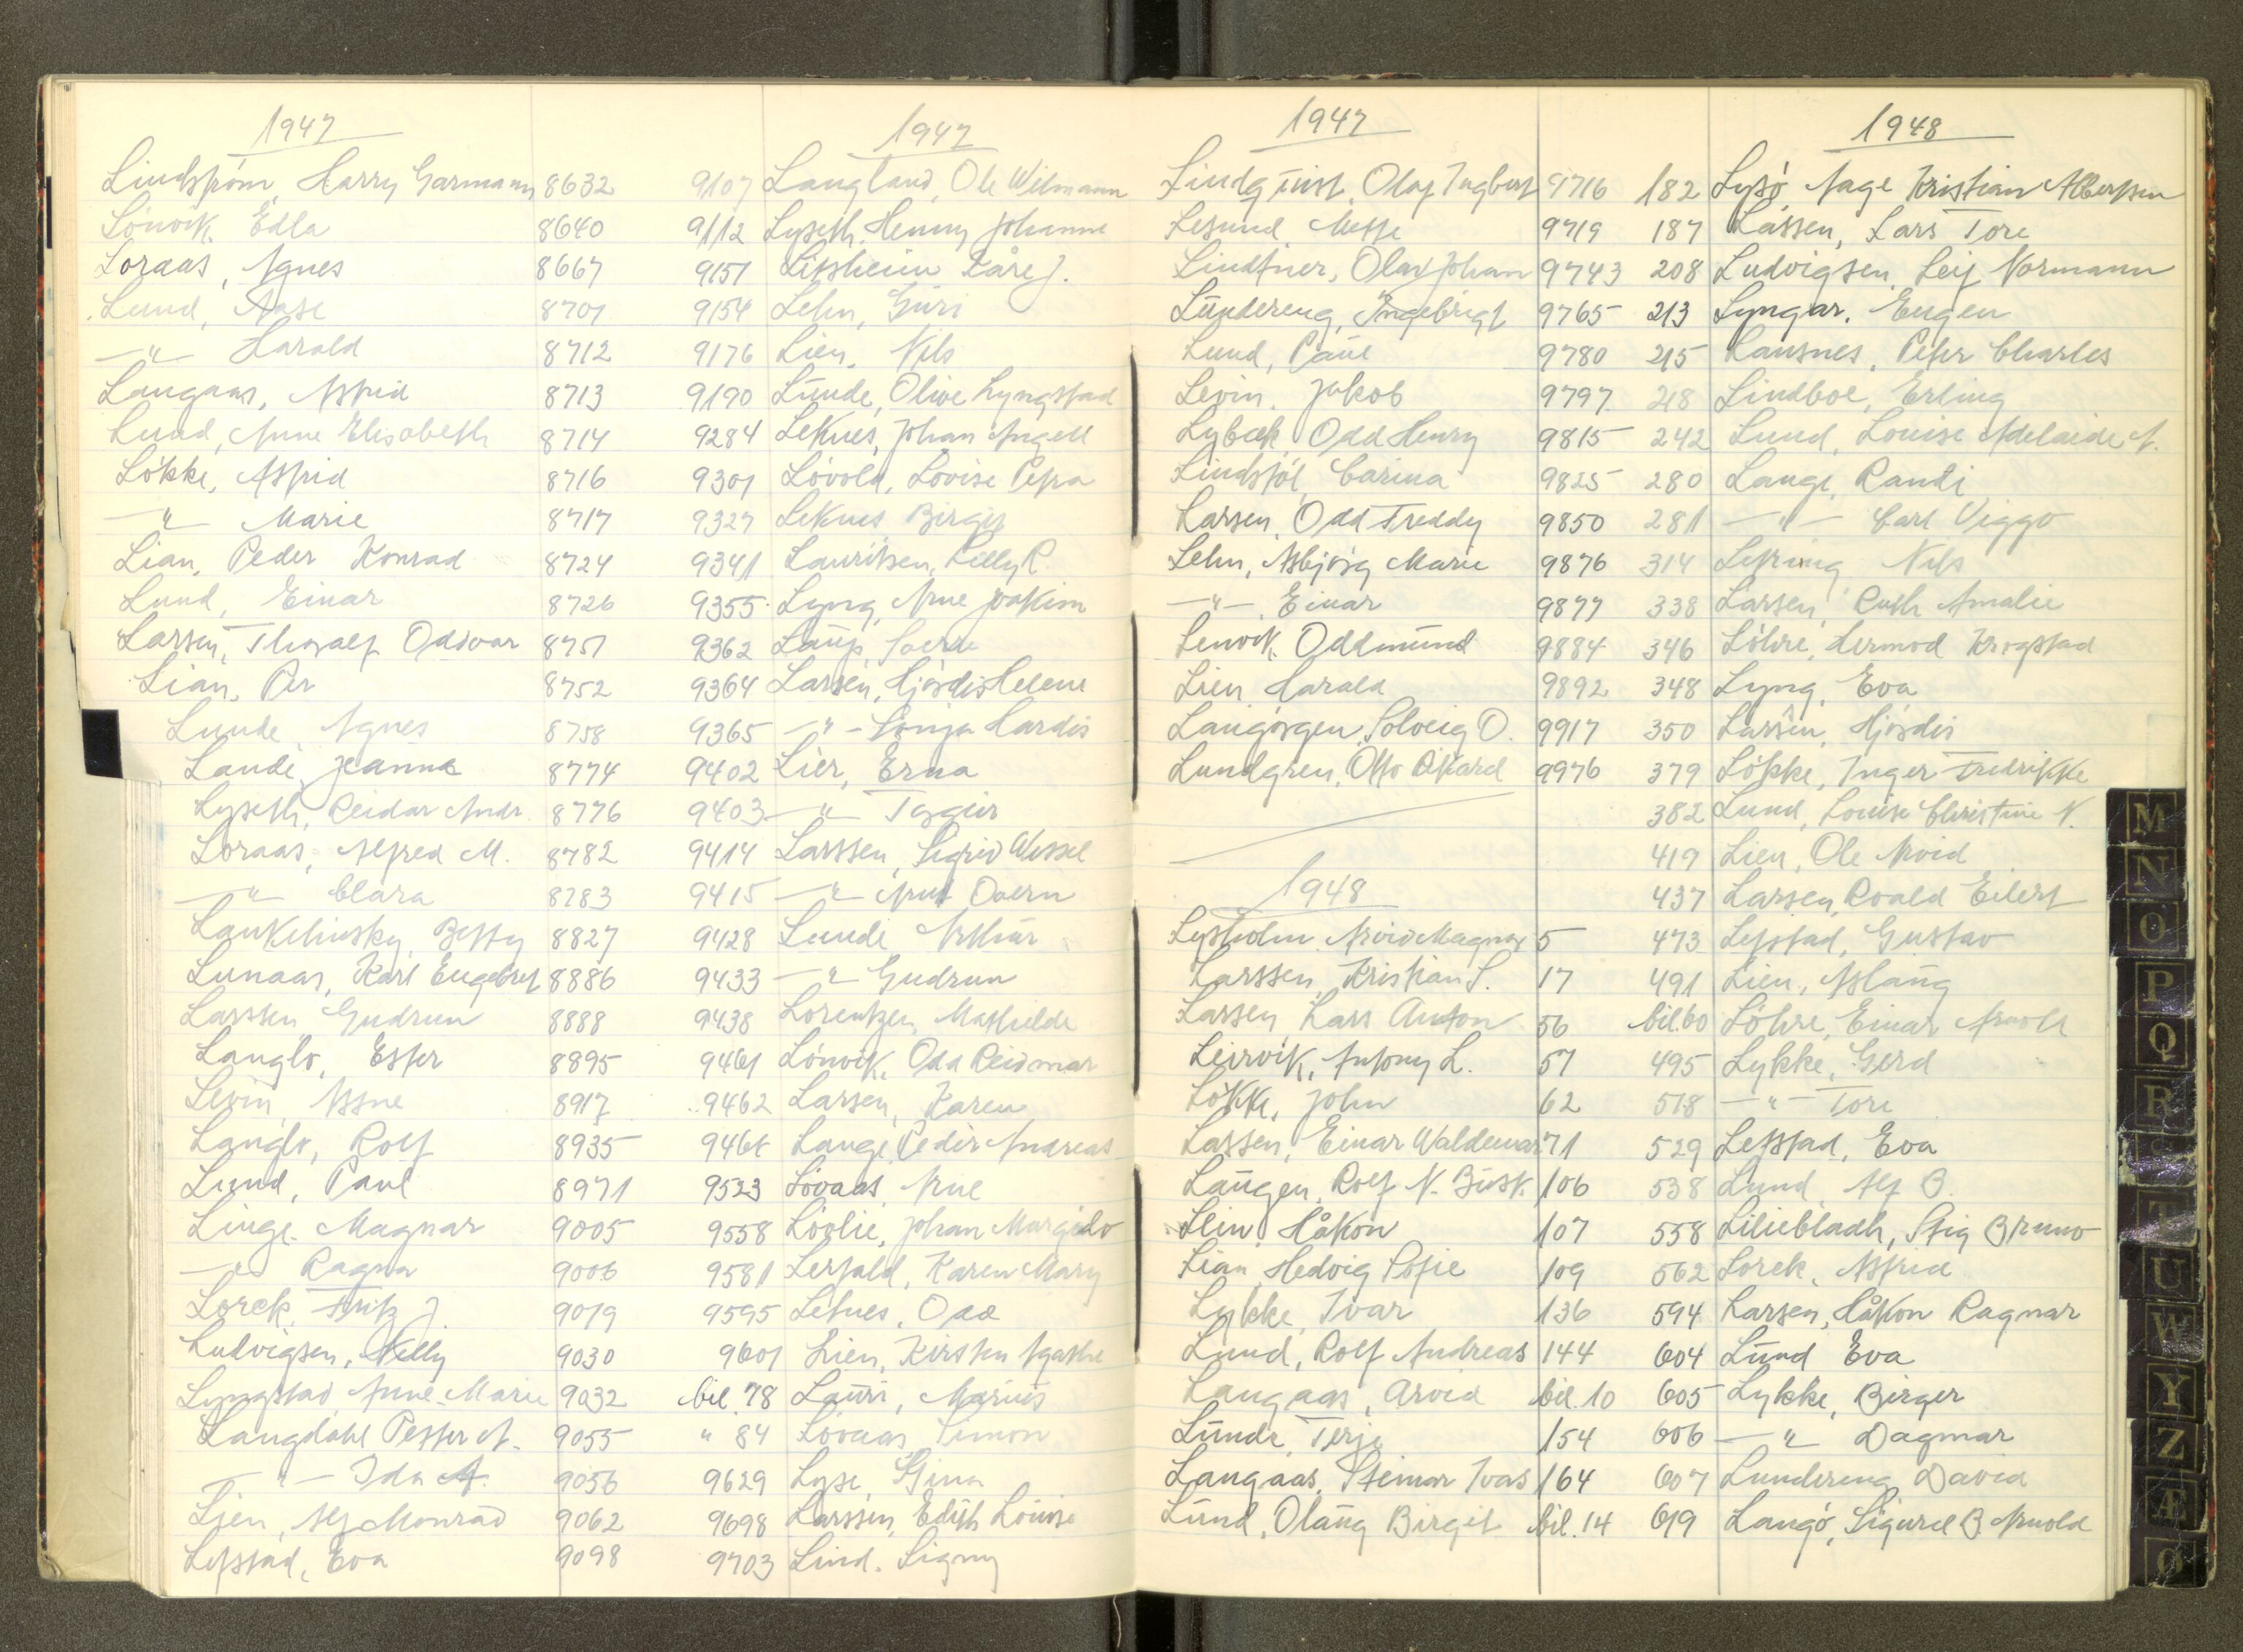 1947
Lindstrøm, Harry Garmann 8632
Lönvik, Edla 8640
Loraas, Agnes 8667
Lund, Aase 8701
—"— Harald 8712
Langaas, Astrid 8713
Lund, Anne Elisabeth 8714
Løkke, Astrid 8716
—"— Marie 8717
Lian, Peder Konrad 8724
Lund, Einar 8726
Larsen, Thoralf Oddvar 8751
Lian, Per 8752
Lunde, Agnes 8758
Lande, Jeanna 8774
Lyseth, Reidar Andr. 8776
Loraas, Alfred M. 8782
—"— Clara 8783
Lankelinsky, Betty 8827
Lunaas, Karl Engebret 8886
Larssen Gudrun 8888
Langlo, Ester 8895
Levin, Assne 8917
Langlo, Rolf 8935
Lund, Paul 8971
Linge, Magnar 9005
—"— Ragna 9006
Lorck, Fritz J. 9019
Ludvigsen, Nelly 9030
Lyngstad, Anne-Marie 9032
Langdahl Petter A. 9055
—"— Ida A. 9056
Lien, Alf Monrad 9062
Lefstad, Eva 9098
1947
9107 Langland, Ole Wilmann
9112 Lyseth, Henny Johanne
9151 Litsheim Kåre J.
9154 Lehn, Guri
9176 Lien, Nils
9190 Lunde, Olive Lyngstad
9284 Leknes, Johan Angell
9301 Lövold, Lovise Petra
9327 Leknes Birgit
9341 Lauritsen, Kelly R.
9355 Lyng, Arne Joakim
9362 Laup,
9364 Larsen, Hjördis Helene
9365 —"— Sonja Hardis
9402 Lier, Erna
9403 —"— Torgeir
9414 Larssen, Sigrid Wessel
9415 —"— Arnt
9428 Lunde, Arthur
9433 —"— Gudrun
9438 Lorentzen, Mathilde
9461 Lönvik, Odd Reidmar
9462 Larsen, Karen
946 Lange, Peder Andreas
9523 Lövaas, Arne
9558 Lövlie, Johan Margido
9581 Lerfald, Karen Mary
9595 Letnes, Odd
9601 Lien, Kirsten Agathe
bil. 78 Lauri, Marius
" 84 Lövaas, Simon
9629 Lyse, Stina
9698 Larssen, Edith Louise
9703 Lind. Signy
1947
Lindquist, Olaf Ingbert 9716
Lesund, Mette 9719
Lindtner, Olav Johan 9743
Lundereng, Ingebrigt 9765
Lund, Paul 9780
Levin, Jakob 9797
Lybæk, Odd Henry 9815
Lindstöl, Carina 9825
Larsen, Odd Freddy 9850
Lehn, Asbjörg Marie 9876
—"— Einar 9877
Lenvik, Oddmund 9884
Lien, Harald 9892
Langörgen, Solveig O. 9917
Lundgren, Otto Rikard 9976
1948
Lysholm, Arvid Magnar 5
Larssen, Kristian S. 17
Larsen, Lars Anton 56
Leirvik, Antony L. 57
Løkke, John 62
Larsen, Einar Waldemar 71
Langen, Rolf N. Busk. 106
Lein Håkon 107
Lian, Hedvig Sofie 109
Lykke, Ivar 136
Lund, Rolf Andreas 144
Langaas, Arvid bil. 10
Lunde, Terje 154
Langaas, Steinar Ivar 164
Lund, Olaug Birgit bil. 14
1948
182 Lysø, Aage Kristian Albertsen
187 Lassen, Lars Tore
208 Ludvigsen, Leif Normann
213 Lyngar, Eugen
215 Lausnes, Peter Charles
218 Lindboe, Erling
242 Lund, Louise Adelaide N.
280 Lange, Randi
281 —"— Carl Viggo
314 Nils
338 Larsen, Ruth Amalie
346 Löhre, Hermod Krogstad
348 Lyng, Eva
350 Larsen, Hjördis
379 Løkke, Inger Fredrikke
382 Lund, Louise Christine N.
419 Lien, Ole Arvid
437 Larsen, Roald Eilert
473 Lefstad, Gustav
491 Lien, Aslaug
bil. 60 Löhre, Einar Arnolt
495 Lykke, Gerd
518 —"— Tore
529 Lefstad, Eva
538 Lund, Alf B.
558 Liliebladh, Stig Bruno
562 Lorck, Astrid
594 Larsen, Håkon Ragnar
604 Lund Eva
605 Lykke, Birger
606 —"— Dagmar
607 Lundereng, David
619 Langø, Sigurd B. Arnold
M
N
O
P
Q
R
S
T
U
W
Y
Z
Æ
Ø